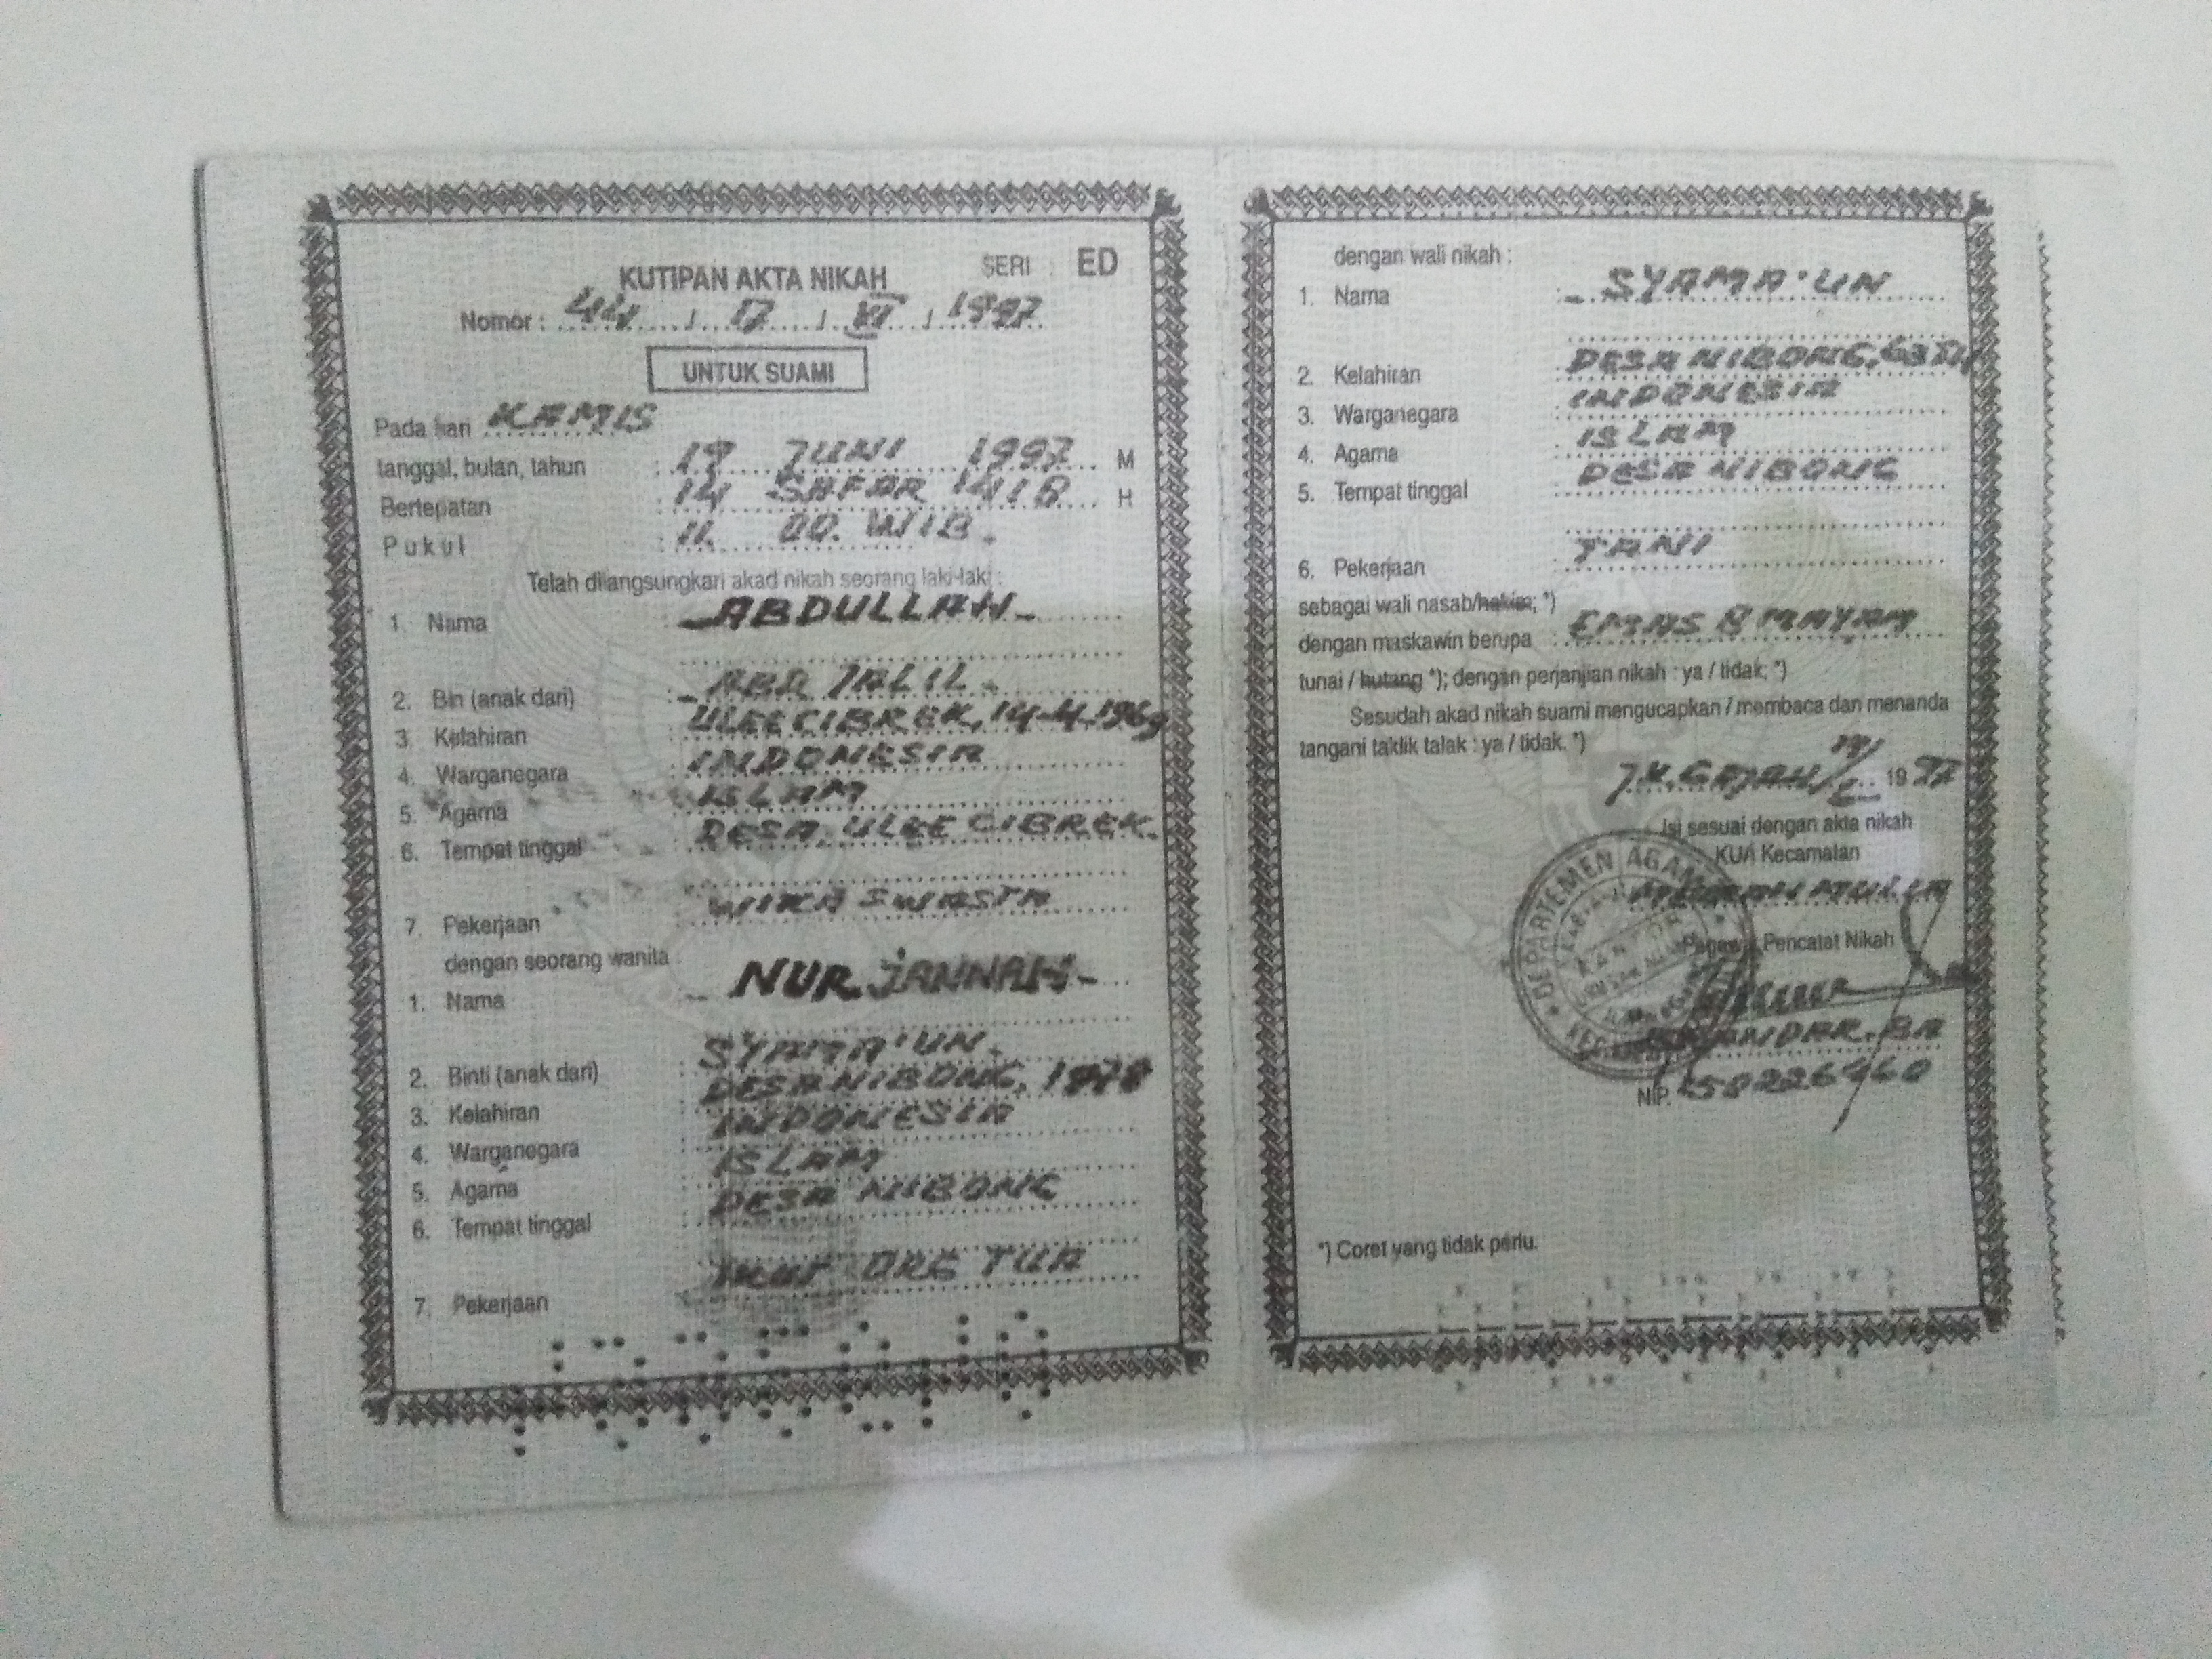 KUTIPAN AKTA NIKAH SERI ED
Nomor : 44 / 17 / VI / 1997
UNTUK SUAMI
Pada hari KAMIS
tanggal, bulan, tahun : 19 JUNI 1997 M
Bertepatan : 14 SHFAR 1418 H
Pukul : 11. 00. WIB.
Telah dilangsungkan akad nikah seorang laki-laki :
1. Nama : - ABDULLAH -
2. Bin (anak dari) : - ABD JALIL -
3. Kelahiran : ULEE CIBREK, 14-4-1969
4. Warganegara : INDONESIA
5. Agama : ISLAM
6. Tempat tinggal : DESA ULEE CIBREK.
7. Pekerjaan : WIRA SWASTA
dengan seorang wanita
1. Nama - NUR JANNAH -
2. Binti (anak dari) : SYAMA'UN.
3. Kelahiran : DESA NIBONG, 1978
4. Warganegara : INDONESIA
5. Agama : ISLAM
6. Tempat tinggal : DESA NIBONG
7. Pekerjaan : IKUT ORG TUA
dengan wali nikah :
1. Nama : - SYAMA'UN
2. Kelahiran : DESA NIBONG,
3. Warganegara : INDONESIA
4. Agama : ISLAM
5. Tempat tinggal : DESA NIBONG
6. Pekerjaan : TANI
sebagai wali nasab/hakim; *)
dengan maskawin berupa : EMAS 8 MAYAM
tunai / hutang *); dengan perjanjian nikah : ya / tidak; *)
Sesudah akad nikah suami mengucapkan / membaca dan menanda
tangani taklik talak : ya / tidak. *)
19 97
Isi sesuai dengan akta nikah
KUA Kecamatan
Pegawai Pencatat Nikah
DEPARTEMEN AGAMA
NIP. 150226460
*) Coret yang tidak perlu.